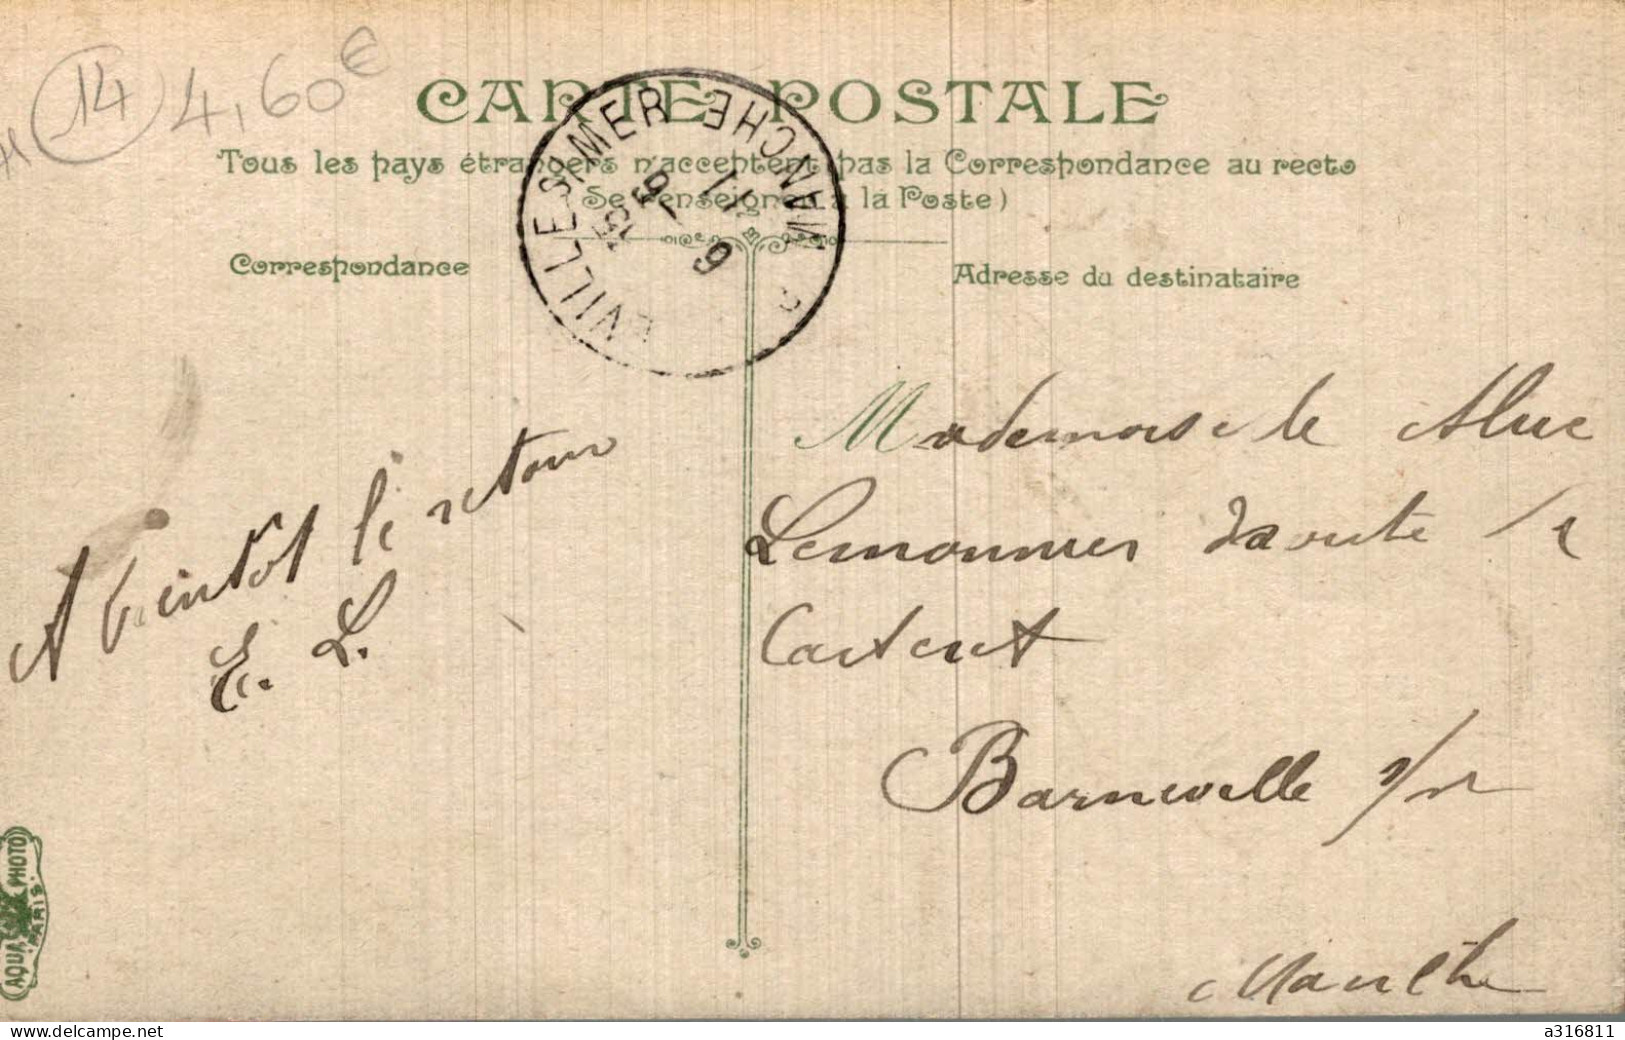 14 4,60€
CARTE POSTALE
Tous les pays étrangers n'acceptent pas la Correspondance au recto
Se renseigner à la Poste)
Correspondance
Adresse du destinataire
VILLE-S-MER MANCHE
15 9 - 11 9
A bientôt le retour
E. L.
Mademoiselle
Lemonnier route
Carteret
Barneville s/m
Manche
AQUA PHOTO
PARIS
www.delcampe.net
a316811